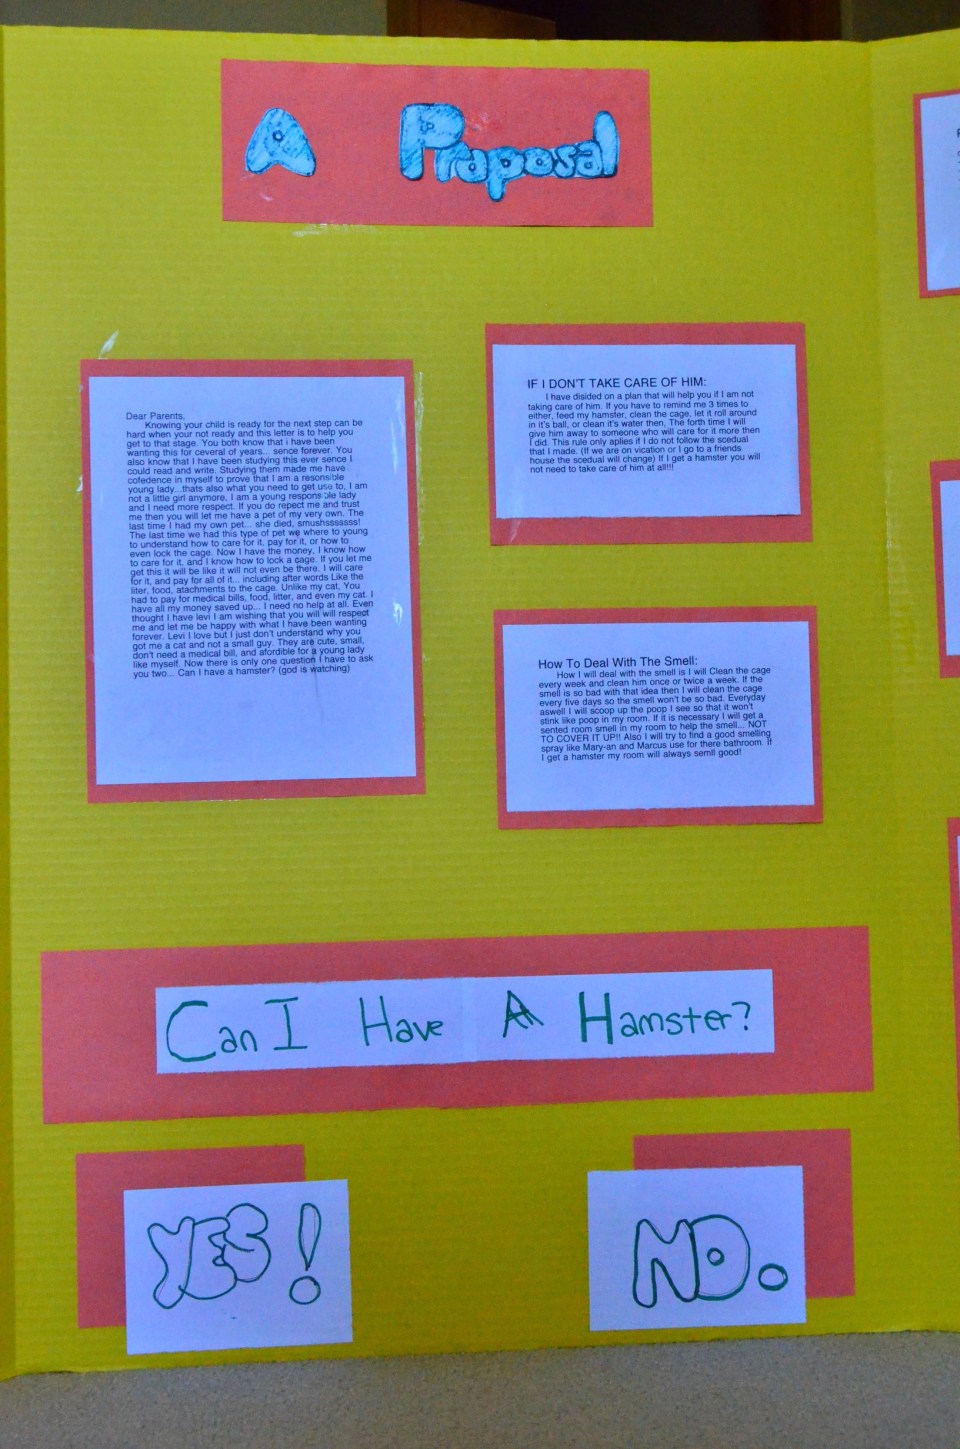 A Proposal
Dear Parents,
Knowing your child is ready for the next step can be
hard when your not ready and this letter is to help you
get to that stage. You both know that i have been
wanting this for ceveral of years... sence forever. You
also know that I have been studying this ever sence I
could read and write. Studying them made me have
cofedence in myself to prove that I am a resonsible
young lady...thats also what you need to get use to, I am
not a little girl anymore, I am a young responsible lady
and I need more respect. If you do repect me and trust
me then you will let me have a pet of my very own. The
last time I had my own pet... she died, smushsssssss!
The last time we had this type of pet we where to young
to understand how to care for it, pay for it, or how to
even lock the cage. Now I have the money, I know how
to care for it, and I know how to lock a cage. If you let me
get this it will be like it will not even be there. I will care
for it, and pay for all of it... including after words Like the
liter, food, atachments to the cage. Unlike my cat, You
had to pay for medical bills, food, litter, and even my cat. I
have all my money saved up... I need no help at all. Even
thought I have levi I am wishing that you will will respect
me and let me be happy with what I have been wanting
forever. Levi I love but I just don't understand why you
got me a cat and not a small guy. They are cute, small,
don't need a medical bill, and afordible for a young lady
like myself. Now there is only one question I have to ask
you two... Can I have a hamster? (god is watching)
IF I DON'T TAKE CARE OF HIM:
I have disided on a plan that will help you if I am not
taking care of him. If you have to remind me 3 times to
either, feed my hamster, clean the cage, let it roll around
in it's ball, or clean it's water then, The forth time I will
give him away to someone who will care for it more then
I did. This rule only aplies if I do not follow the scedual
that I made. (If we are on vication or I go to a friends
house the scedual will change) If I get a hamster you will
not need to take care of him at all!!!!
How To Deal With The Smell:
How I will deal with the smell is I will Clean the cage
every week and clean him once or twice a week. If the
smell is so bad with that idea then I will clean the cage
every five days so the smell won't be so bad. Everyday
aswell I will scoop up the poop I see so that it won't
stink like poop in my room. If it is necessary I will get a
sented room smell in my room to help the smell... NOT
TO COVER IT UP!! Also I will try to find a good smelling
spray like Mary-an and Marcus use for there bathroom. If
I get a hamster my room will always semll good!
Can I Have A Hamster?
YES!
NO.